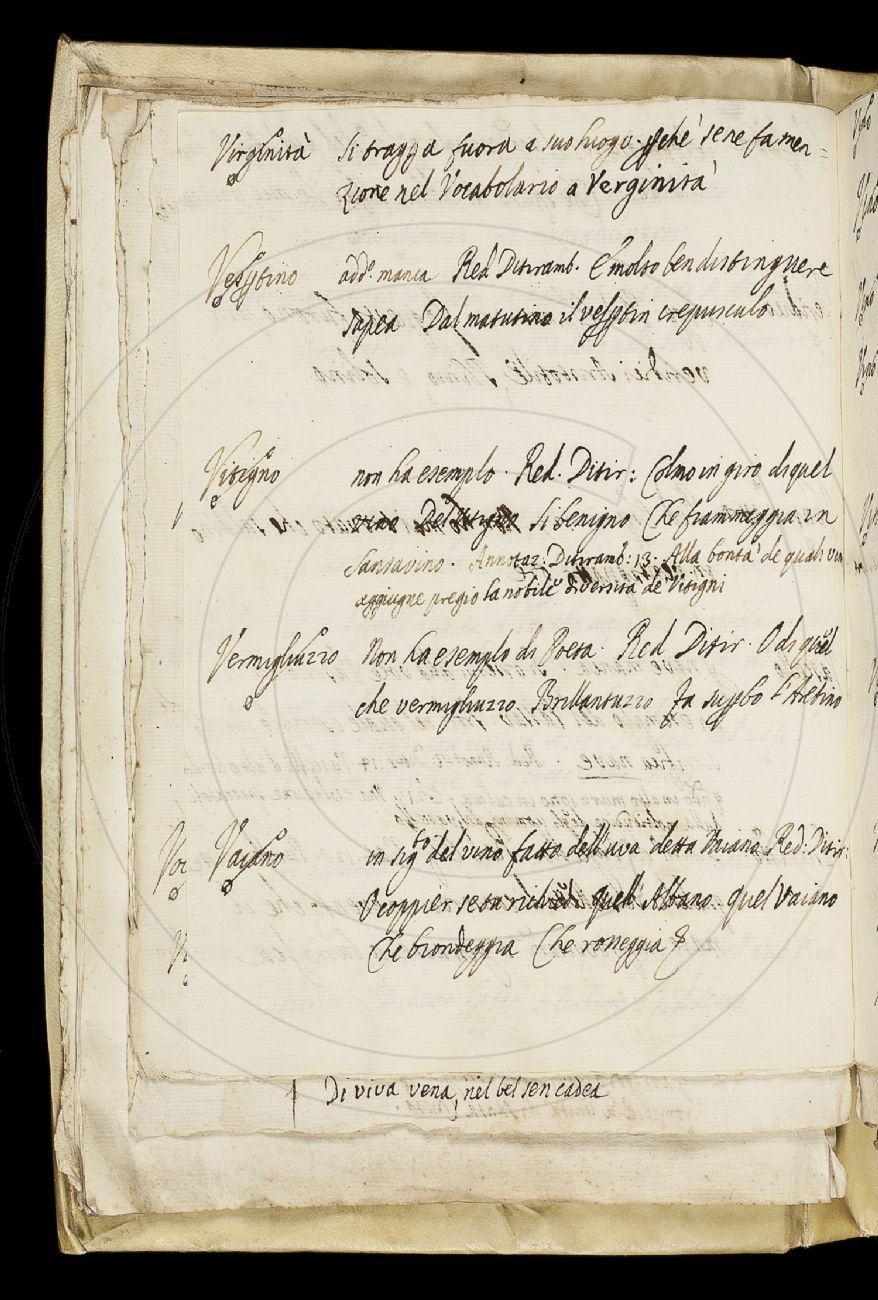 Virginità Si tragga fuora a suo luogo. pche' se ne fa men=
zione nel Vocabolario a Verginità
Vespstino add. manca Red Ditiramb. E' molto ben distinguere
sapea Dal matutino il vesptin crepusculo
Vitigno non ha esempio. Red. Ditir: Colmo in giro di quel
vino Del Vitigno Si benigno Che fiammeggia in
Sansavino. Annotaz: Ditiramb: 13. Alla bontà de quali vini
aggiugne pregio la nobile diversità de Vitigni
Vermigliuzzo Non ha esempio di Poeta. Red Ditir. O di quel
che vermigliuzzo Brillantuzzo Fa superbo l'Aretino
Voc Vaiano in sig.to del vino fatto dell'uva detta Vaiana Red: Ditir:
O coppier se tu richiedi quell' Albano quel Vaiano
Che biondeggia Che rosseggia
Di viva vena, nel bel sen cadea